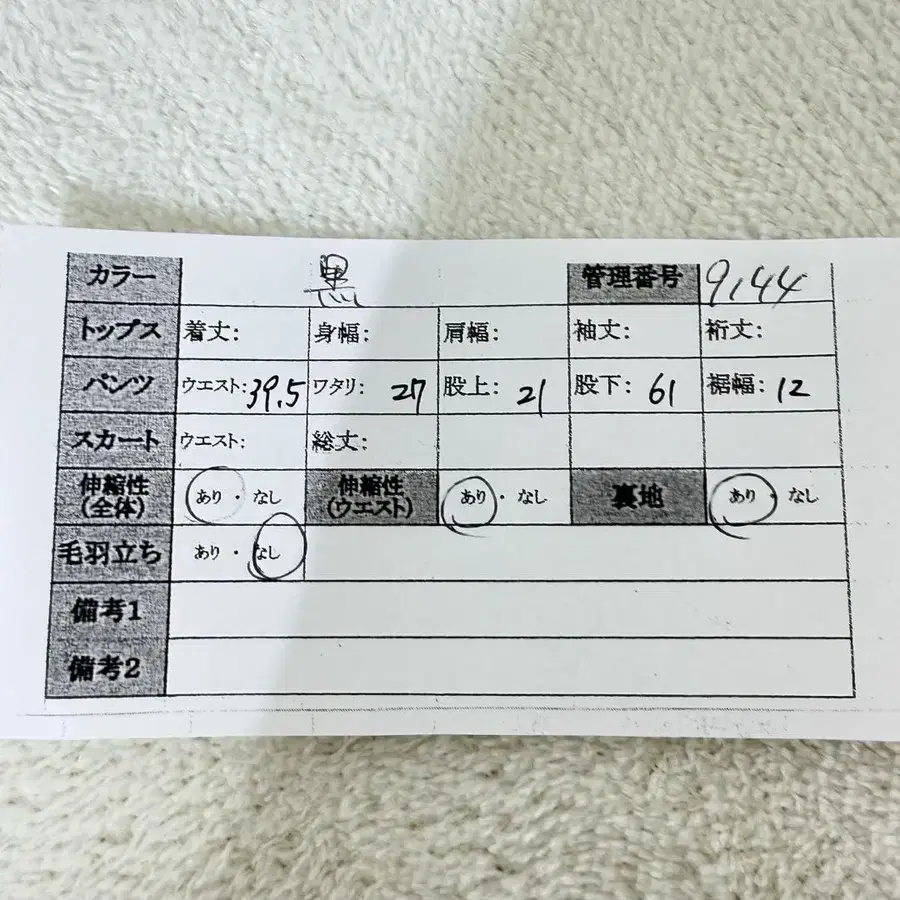 カラー 黒 管理番号 9144
トップス 着丈: 身幅: 肩幅: 袖丈: 裄丈:
パンツ ウエスト: 39.5 ワタリ: 27 股上: 21 股下: 61 裾幅: 12
スカート ウエスト: 総丈:
伸縮性 (全体) あり・なし 伸縮性 (ウエスト) あり・なし 裏地 あり・なし
毛羽立ち あり・なし
備考1
備考2